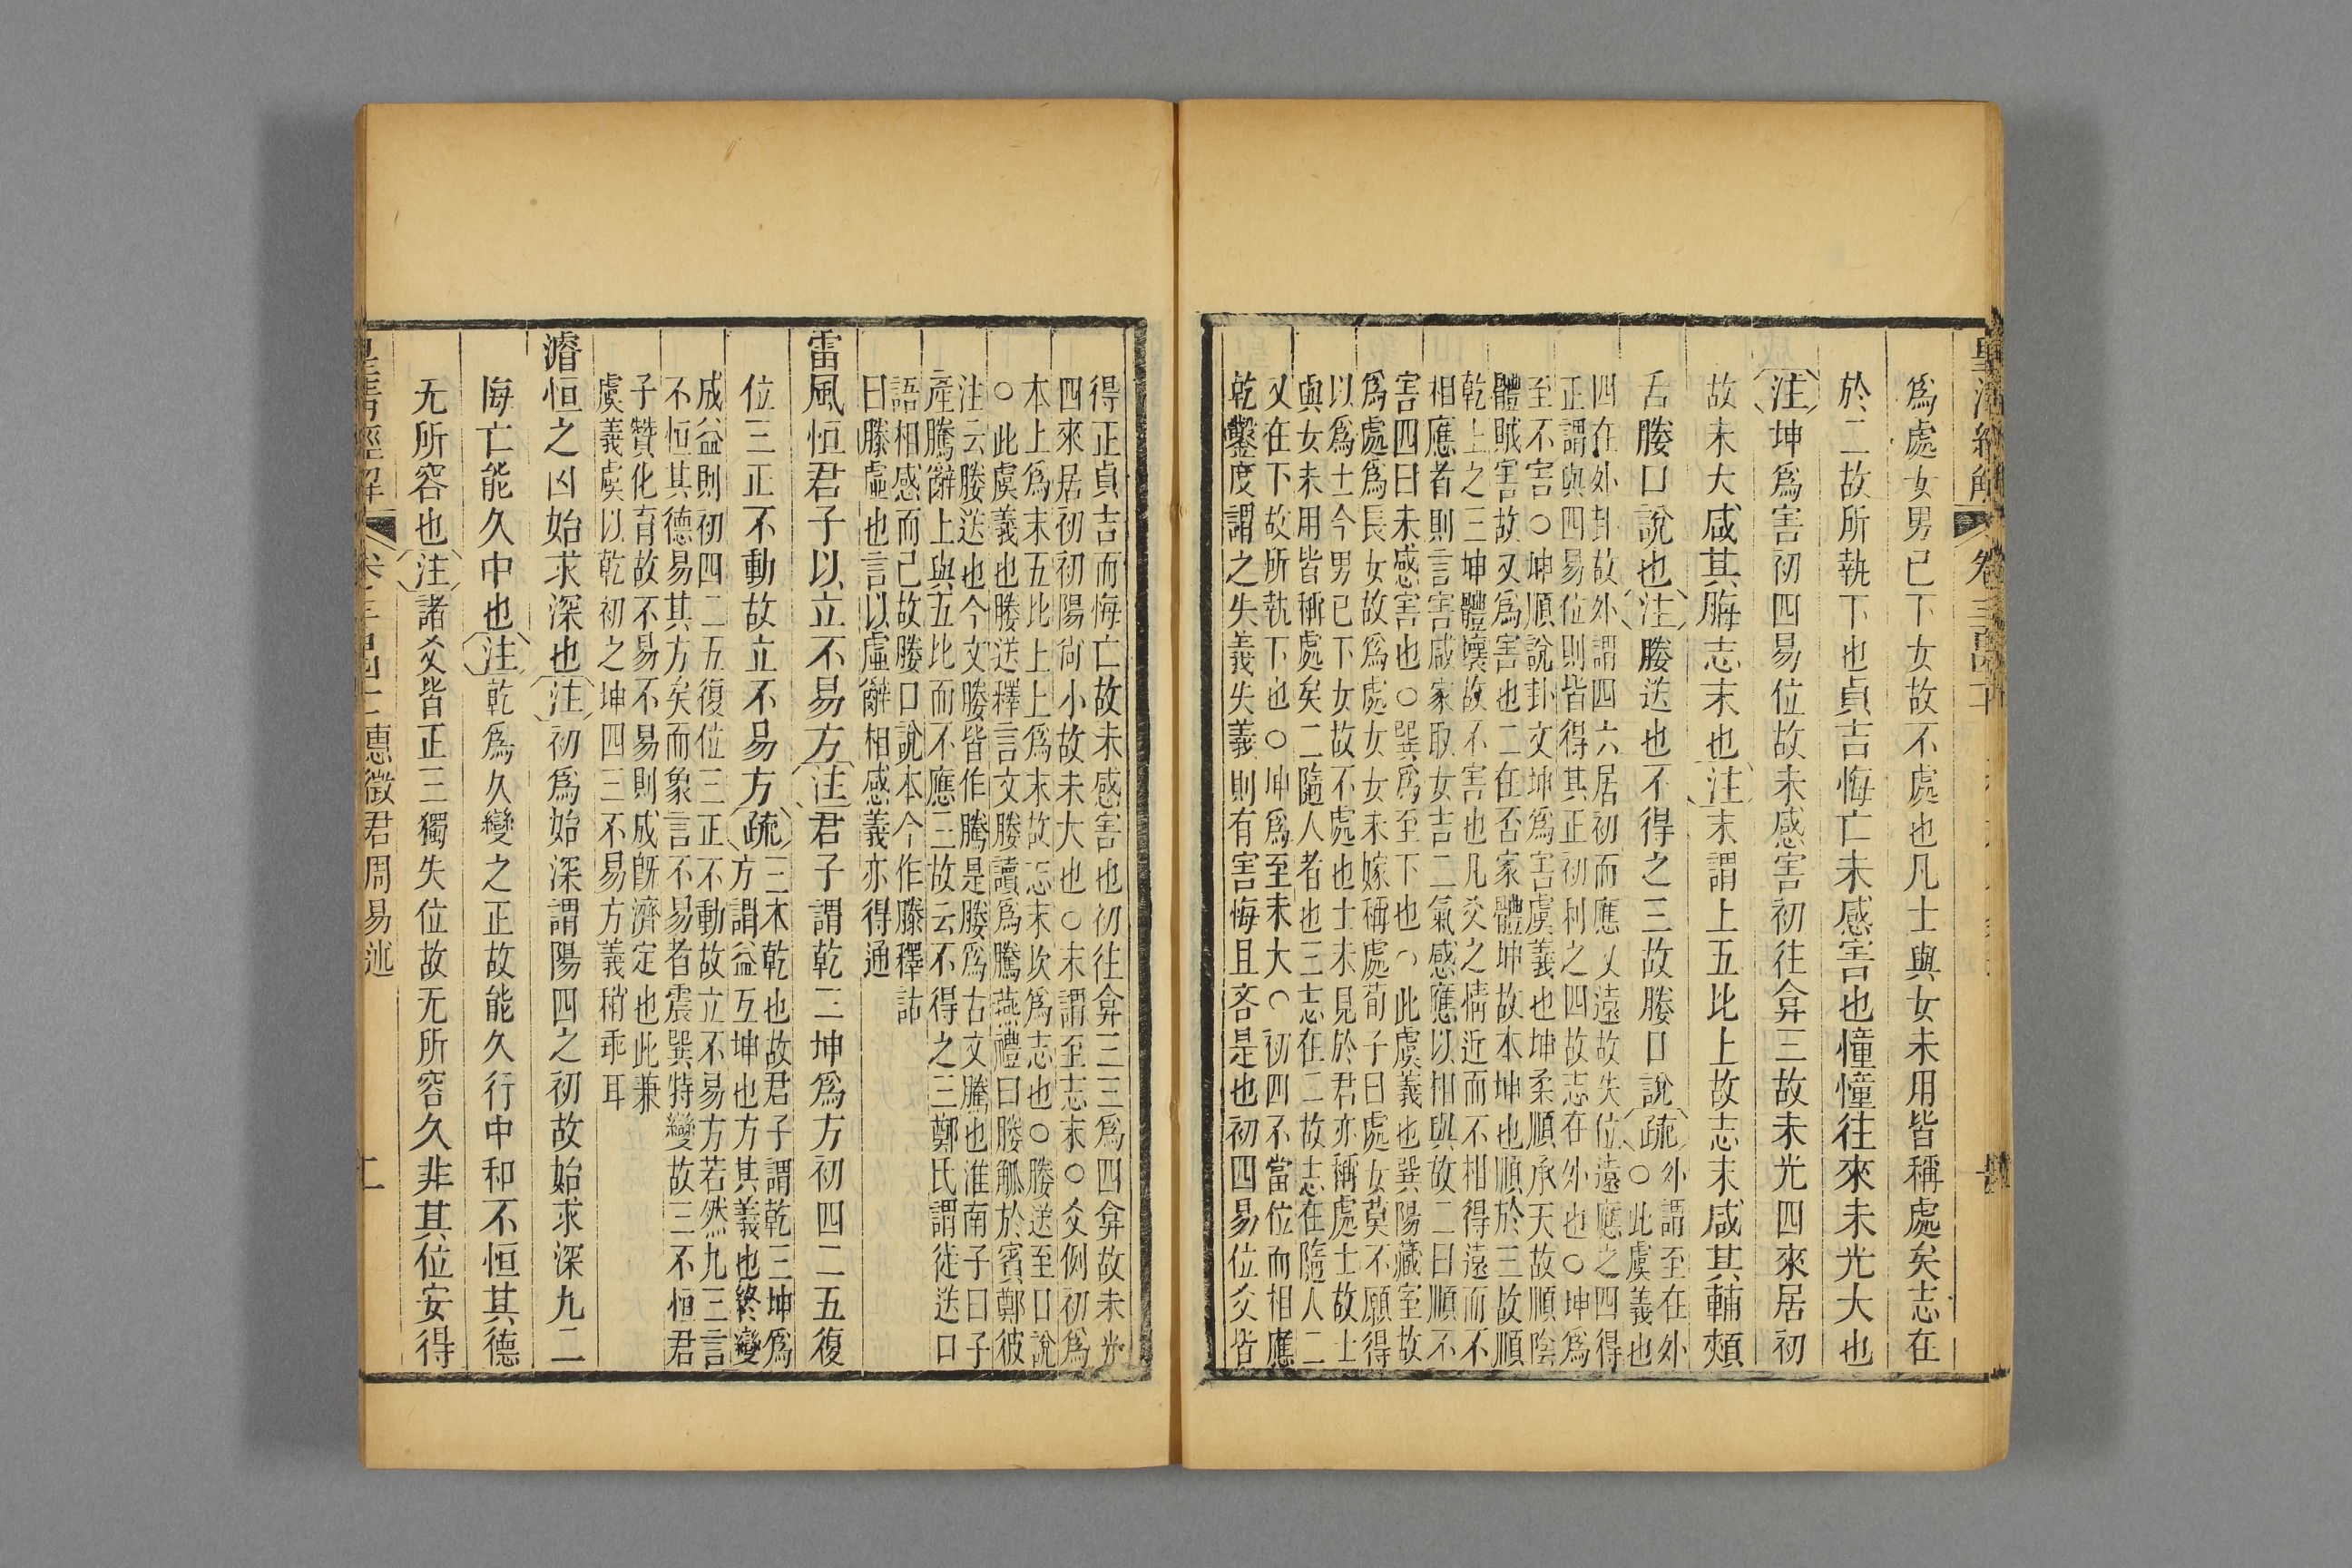 皇清經解
卷三百四十
爲處女男已下女故不處也凡士與女未用皆稱處矣志在
於二故所執下也貞吉悔亡未感害也憧憧往來未光大也
注坤爲害初四易位故未感害初往弇三故未光四來居初
故未大咸其脢志末也注末謂上五比上故志末咸其輔頰
舌媵口說也注媵送也不得之三故媵口說疏外謂至在外
○此虞義也
四在外卦故外謂四六居初而應乂遠故失位遠應之四得
正謂與四易位則皆得其正初利之四故志在外也○坤爲
至不害○坤順說卦文坤爲害虞義也坤柔順承天故順陰
體賊害故又爲害也二在否家體坤故本坤也順於三故順
乾上之三坤體壞故不害也凡爻之情近而不相得遠而不
相應者則言害咸家取女吉二氣感應以相與故二曰順不
害四曰未感害也○巽爲至下也○此虞義也巽陽藏室故
爲處爲長女故爲處女女未嫁稱處荀子曰處女莫不願得
以爲士今男已下女故不處也士未見於君亦稱處士故士
與女未用皆稱處矣二隨人者也三志在二故志在隨人二
又在下故所執下也○坤爲至未大○初四不當位而相應
乾鑿度謂之失義失義則有害悔且吝是也初四易位爻皆
得正貞吉而悔亡故未感害也初往弇三三爲四弇故未光
四來居初初陽尙小故未大也○末謂至志末○爻例初爲
本上爲末五比上上爲末故志末坎爲志也○媵送至口說
○此虞義也媵送釋言文媵讀爲騰燕禮曰媵觚於賓鄭彼
注云媵送也今文媵皆作騰是媵爲古文騰也淮南子曰子
產騰辭上與五比而不應三故云不得之三鄭氏謂徒送口
語相感而已故媵口說本今作滕釋詁
曰滕虛也言以虛辭相感義亦得通
雷風恒君子以立不易方注君子謂乾三坤爲方初四二五復
位三正不動故立不易方疏三本乾也故君子謂乾三坤爲
方謂益互坤也方其義也終變
成益則初四二五復位三正不動故立不易方若然九三言
不恒其德易其方矣而象言不易者震巽特變故三不恒君
子贊化育故不易不易則成旣濟定也此兼
虞義虞以乾初之坤四三不易方義稍乖耳
濬恒之凶始求深也注初爲始深謂陽四之初故始求深九二
悔亡能久中也注乾爲久變之正故能久行中和不恒其德
无所容也注諸爻皆正三獨失位故无所容久非其位安得
皇清經解
卷三百四十
惠徵君周易述